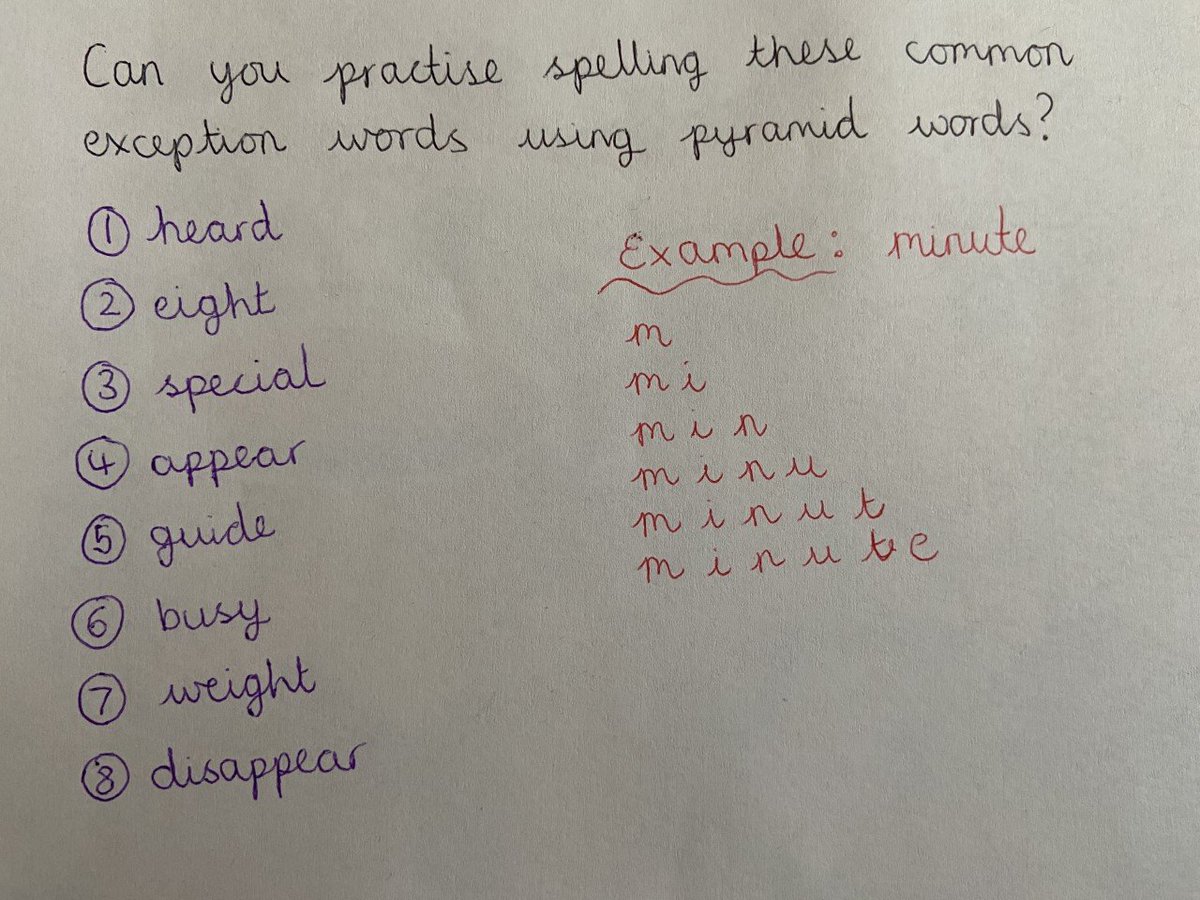 Can you practise spelling these common
exception words using pyramid words?
① heard
② eight
③ special
④ appear
⑤ guide
⑥ busy
⑦ weight
⑧ disappear
Example: minute
m
m i
m i n
m i n u
m i n u t
m i n u t e